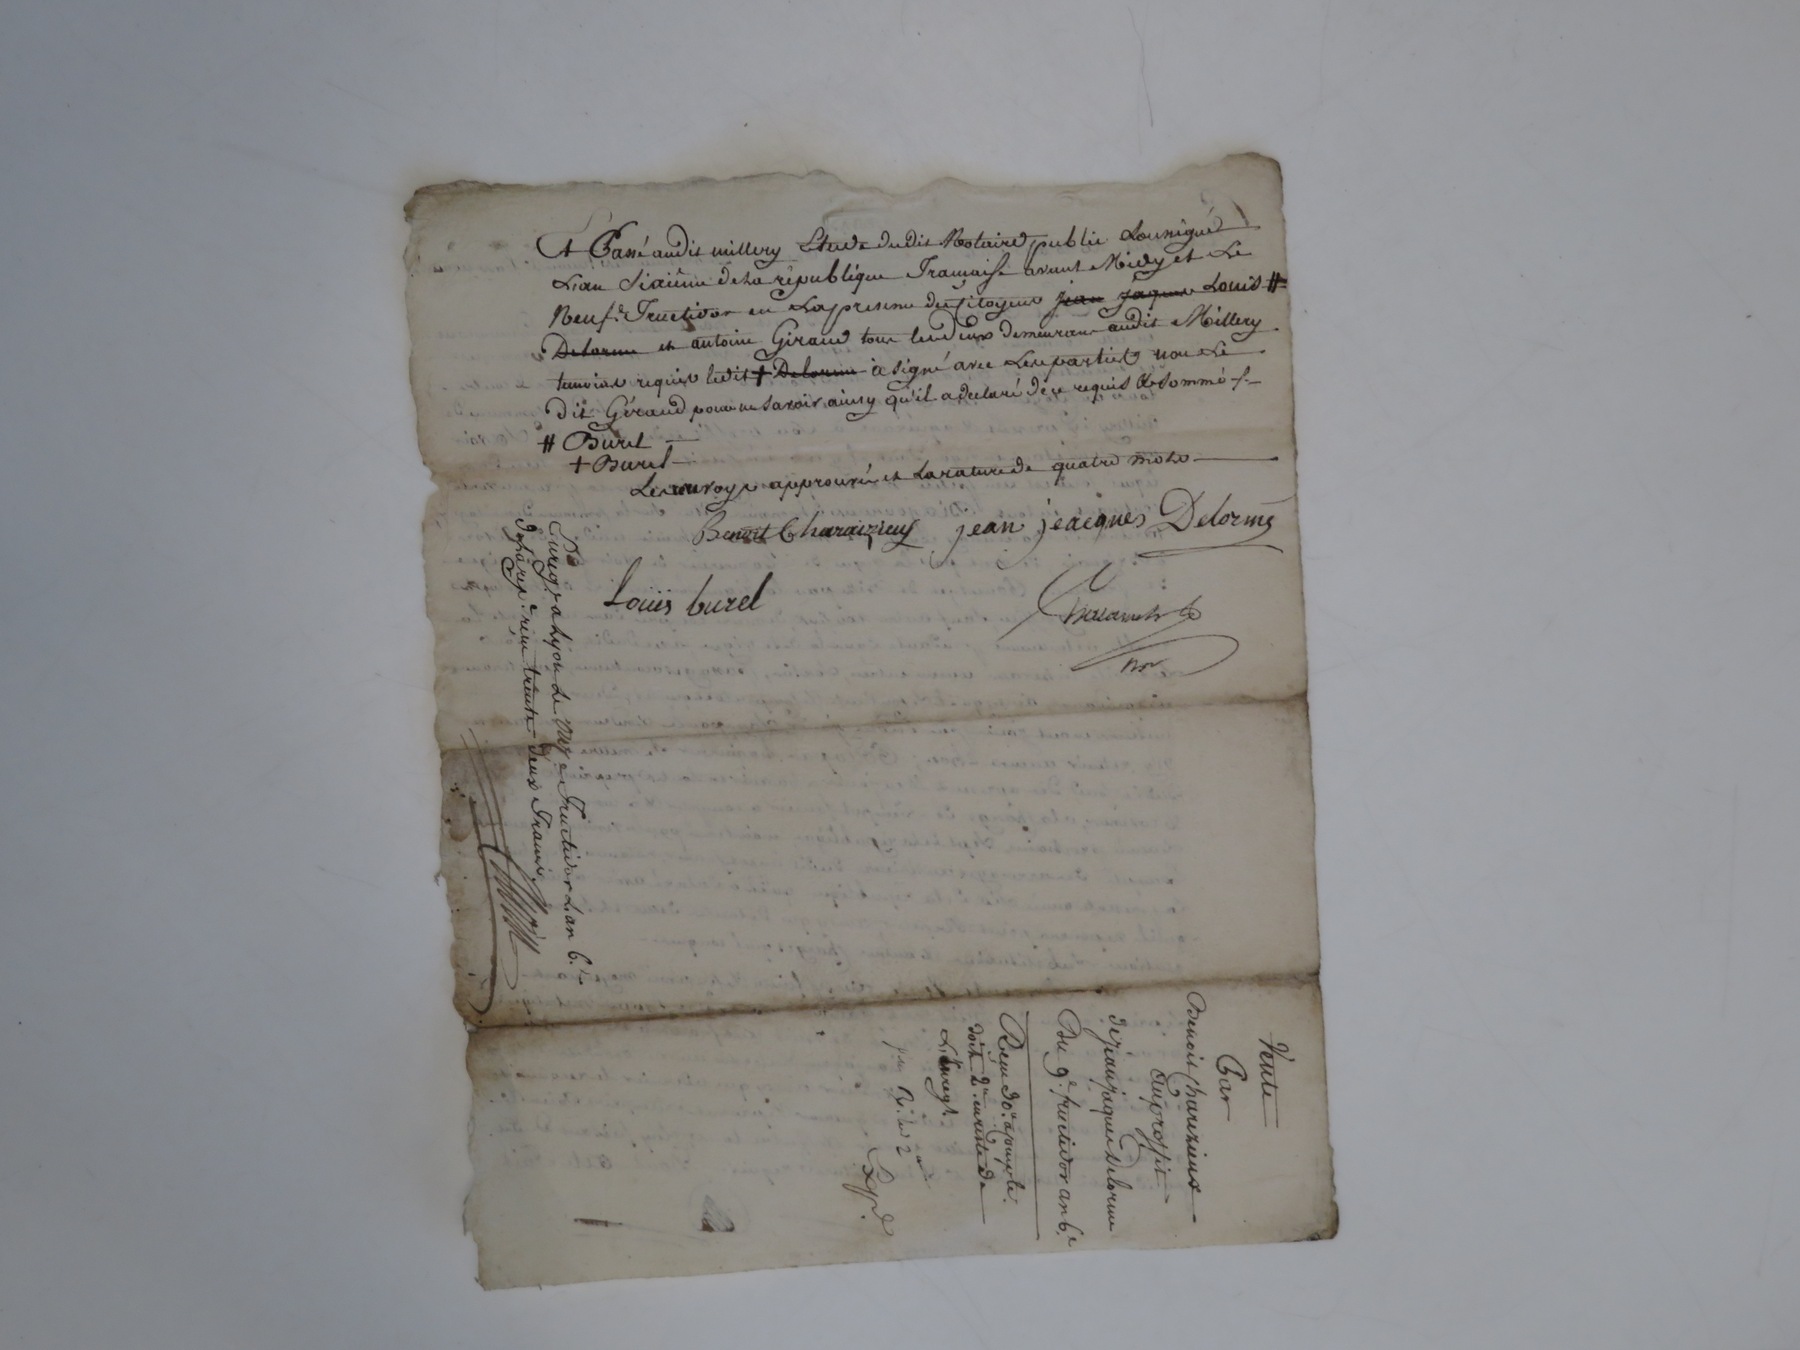 Passé audit millery Etude dudit Notaire public soussigné
L'an sixième de la république française avant Midy et Le
Neuf Fructidor en La presence des Citoyens jean jaques Louis #
Delorme et antoine Giraud tous les deux demeurans audit Millery
temoins requis ledit + Delorme a signé avec Les parties non Le
dit Giraud pour ne savoir ainsy qu'il a déclaré de ce requis & sommé
# Burel
+ Burel
Les renvoys approuvés et la rature de quatre mots
Benoit Charaizieux jean jeacques Delorme
Louis burel
Enreg. a Lyon Le fructidor L'an 6.e
reçu trente deux francs
Vente
Par
Benoit Charézieux
au proffit
de jean jaques Delorme
Du 9.e fructidor an 6.e
Reçu 30.# a compte
doit 2.# en reste de
L'Enregt.
Reçu les 2
Expd.